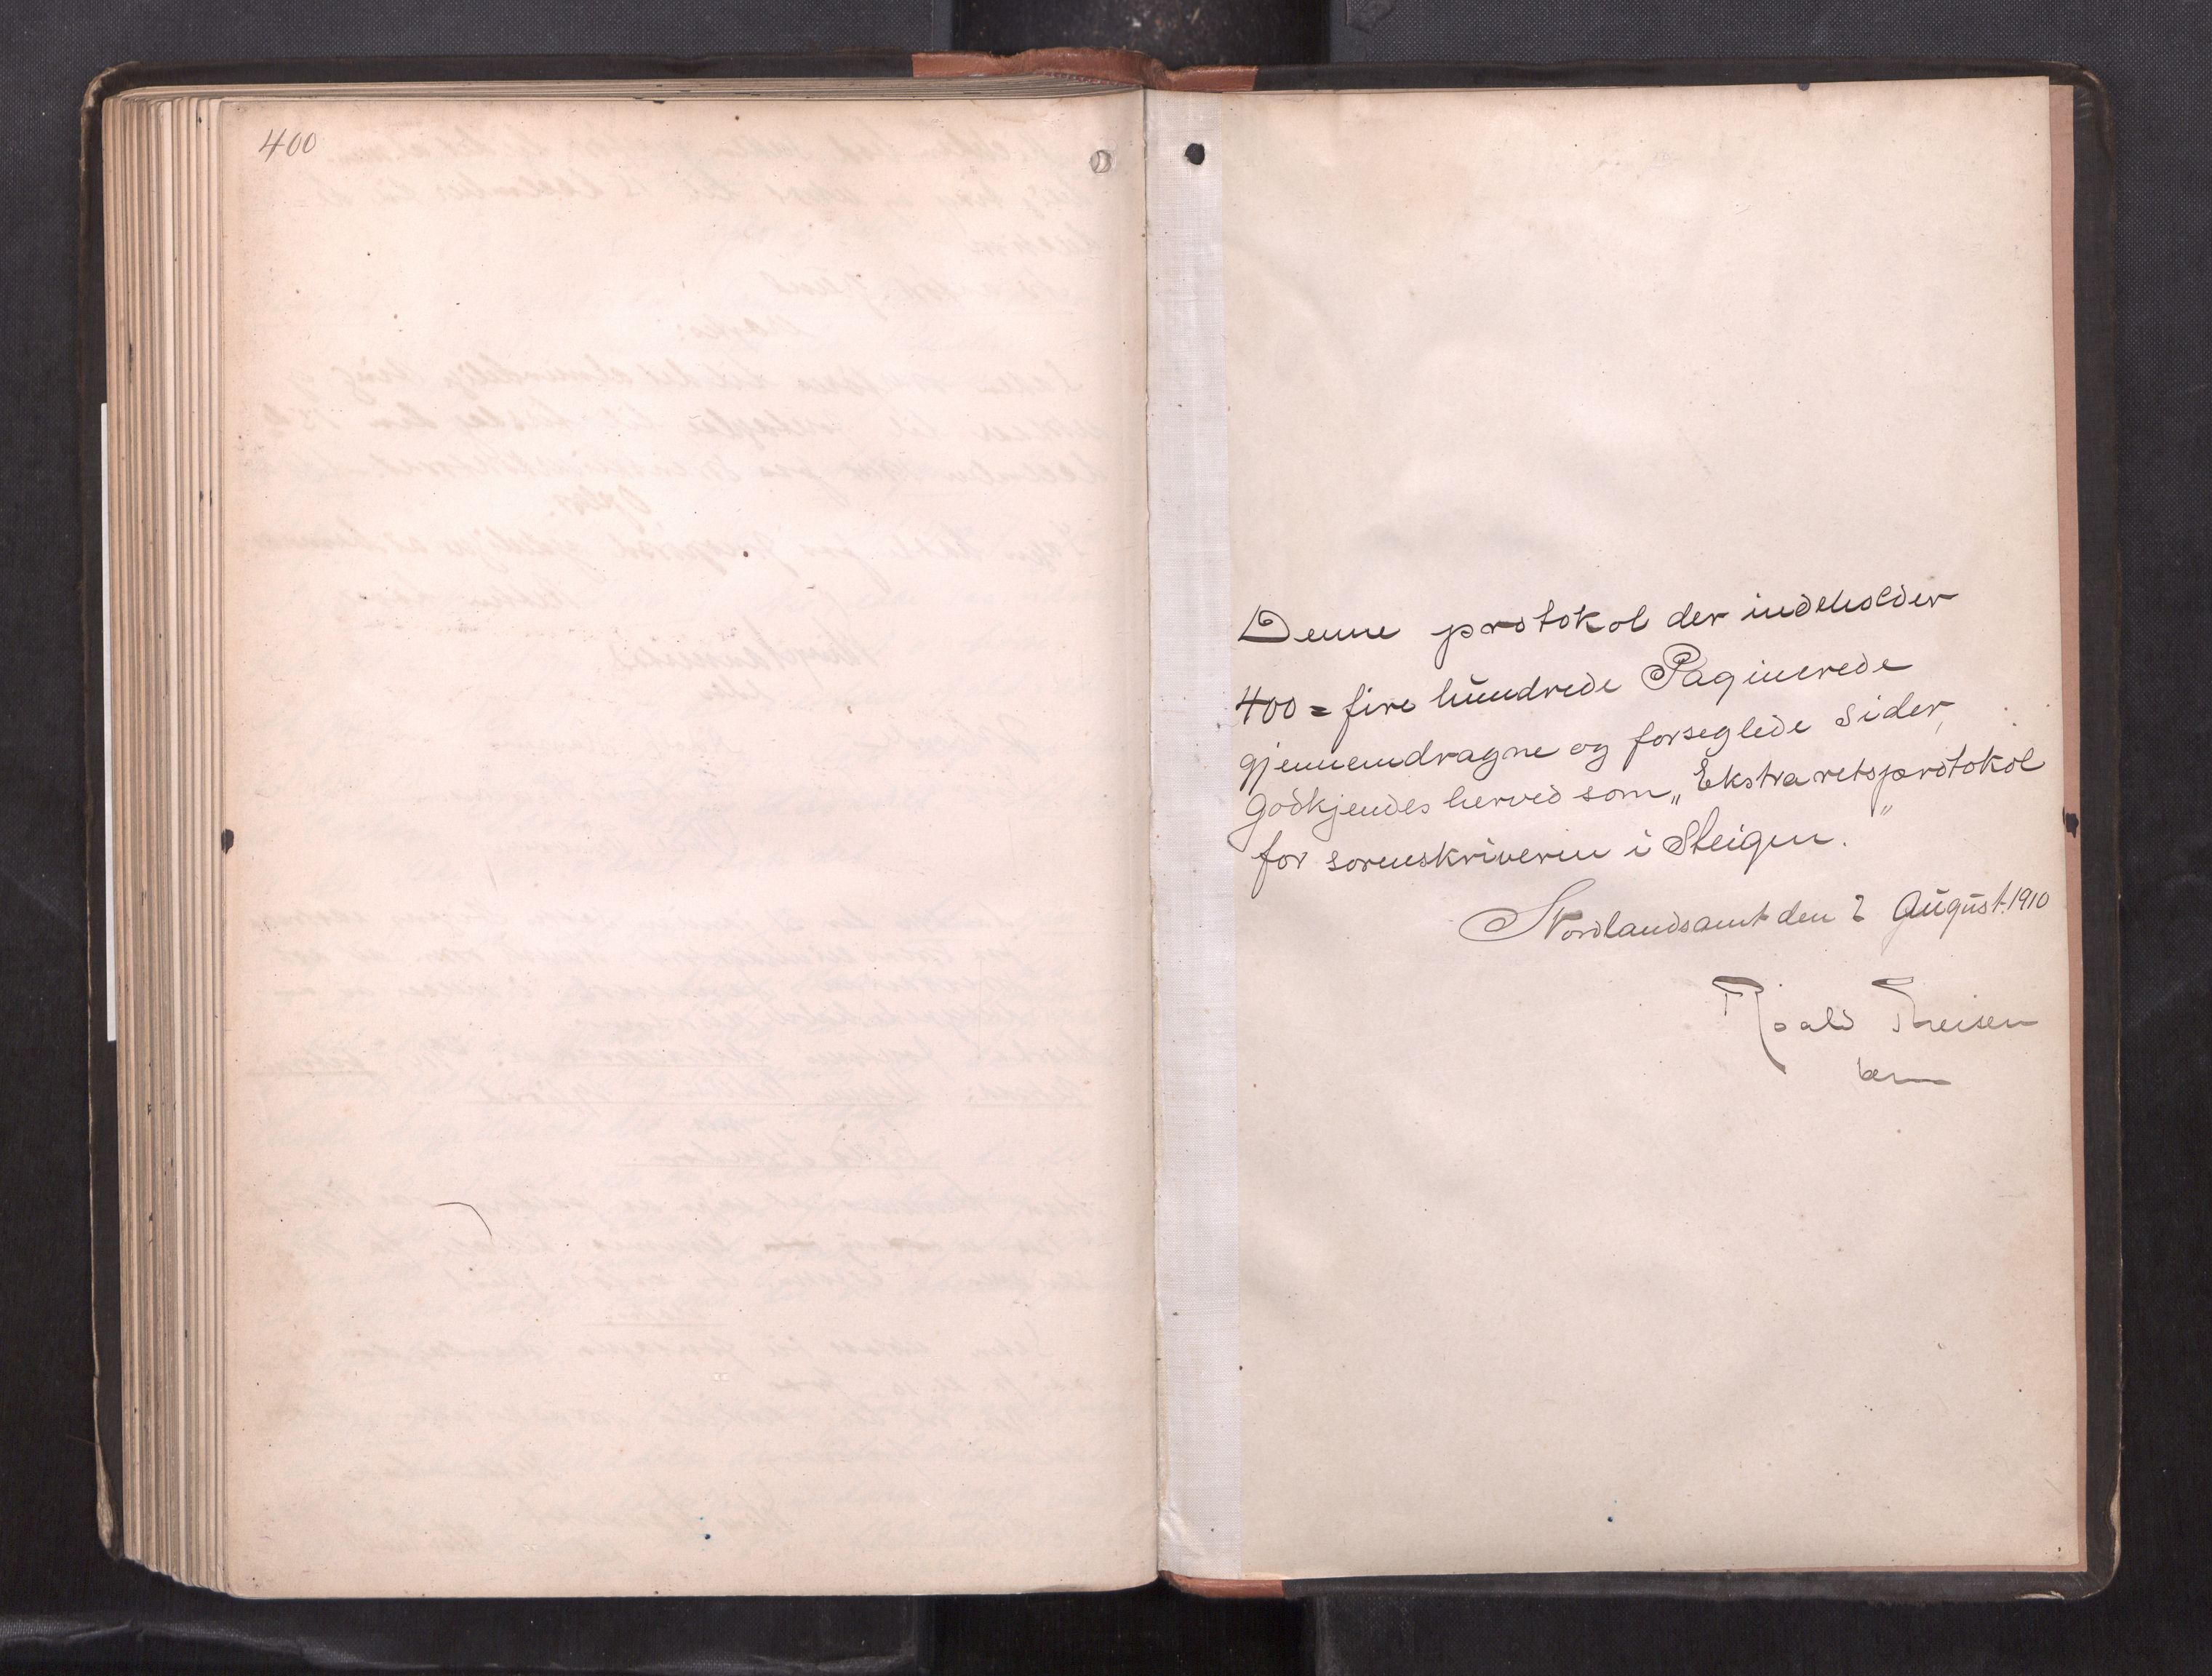 400
Denne protokol der indeholder
400 = fire hundrede Paginerede
gjennemdragne og forseglede sider,
godkjendes herved som „Ekstraretsprotokol"
for sorenskriveren i Steigen.
Nordlandsamt den 2 August. 1910
Roald Theisen